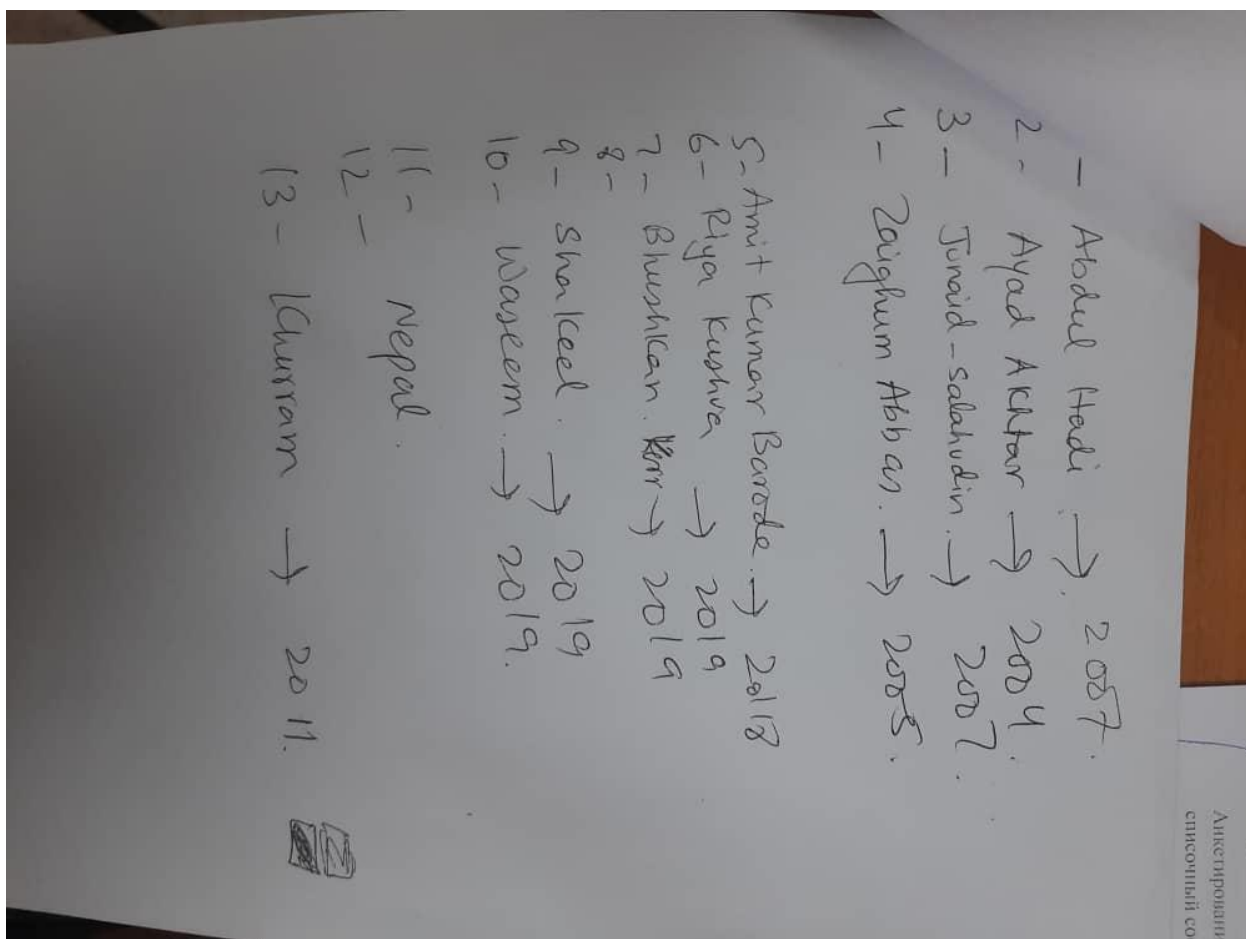 - Abdul Hadi → 2007.
2- Ayad Akhtar → 2004.
3- Junaid-salahudin. → 2007.
4- Zaighum Abbas. → 2005.
5- Amit Kumar Barode. → 2018
6- Riya Kushva → 2019
7- Bhushkan. → 2019
8-
9- Shakeel. → 2019
10- Waseem. → 2019.
11- Nepal.
12-
13- Khurram → 2011.
Анкетировани
списочный со